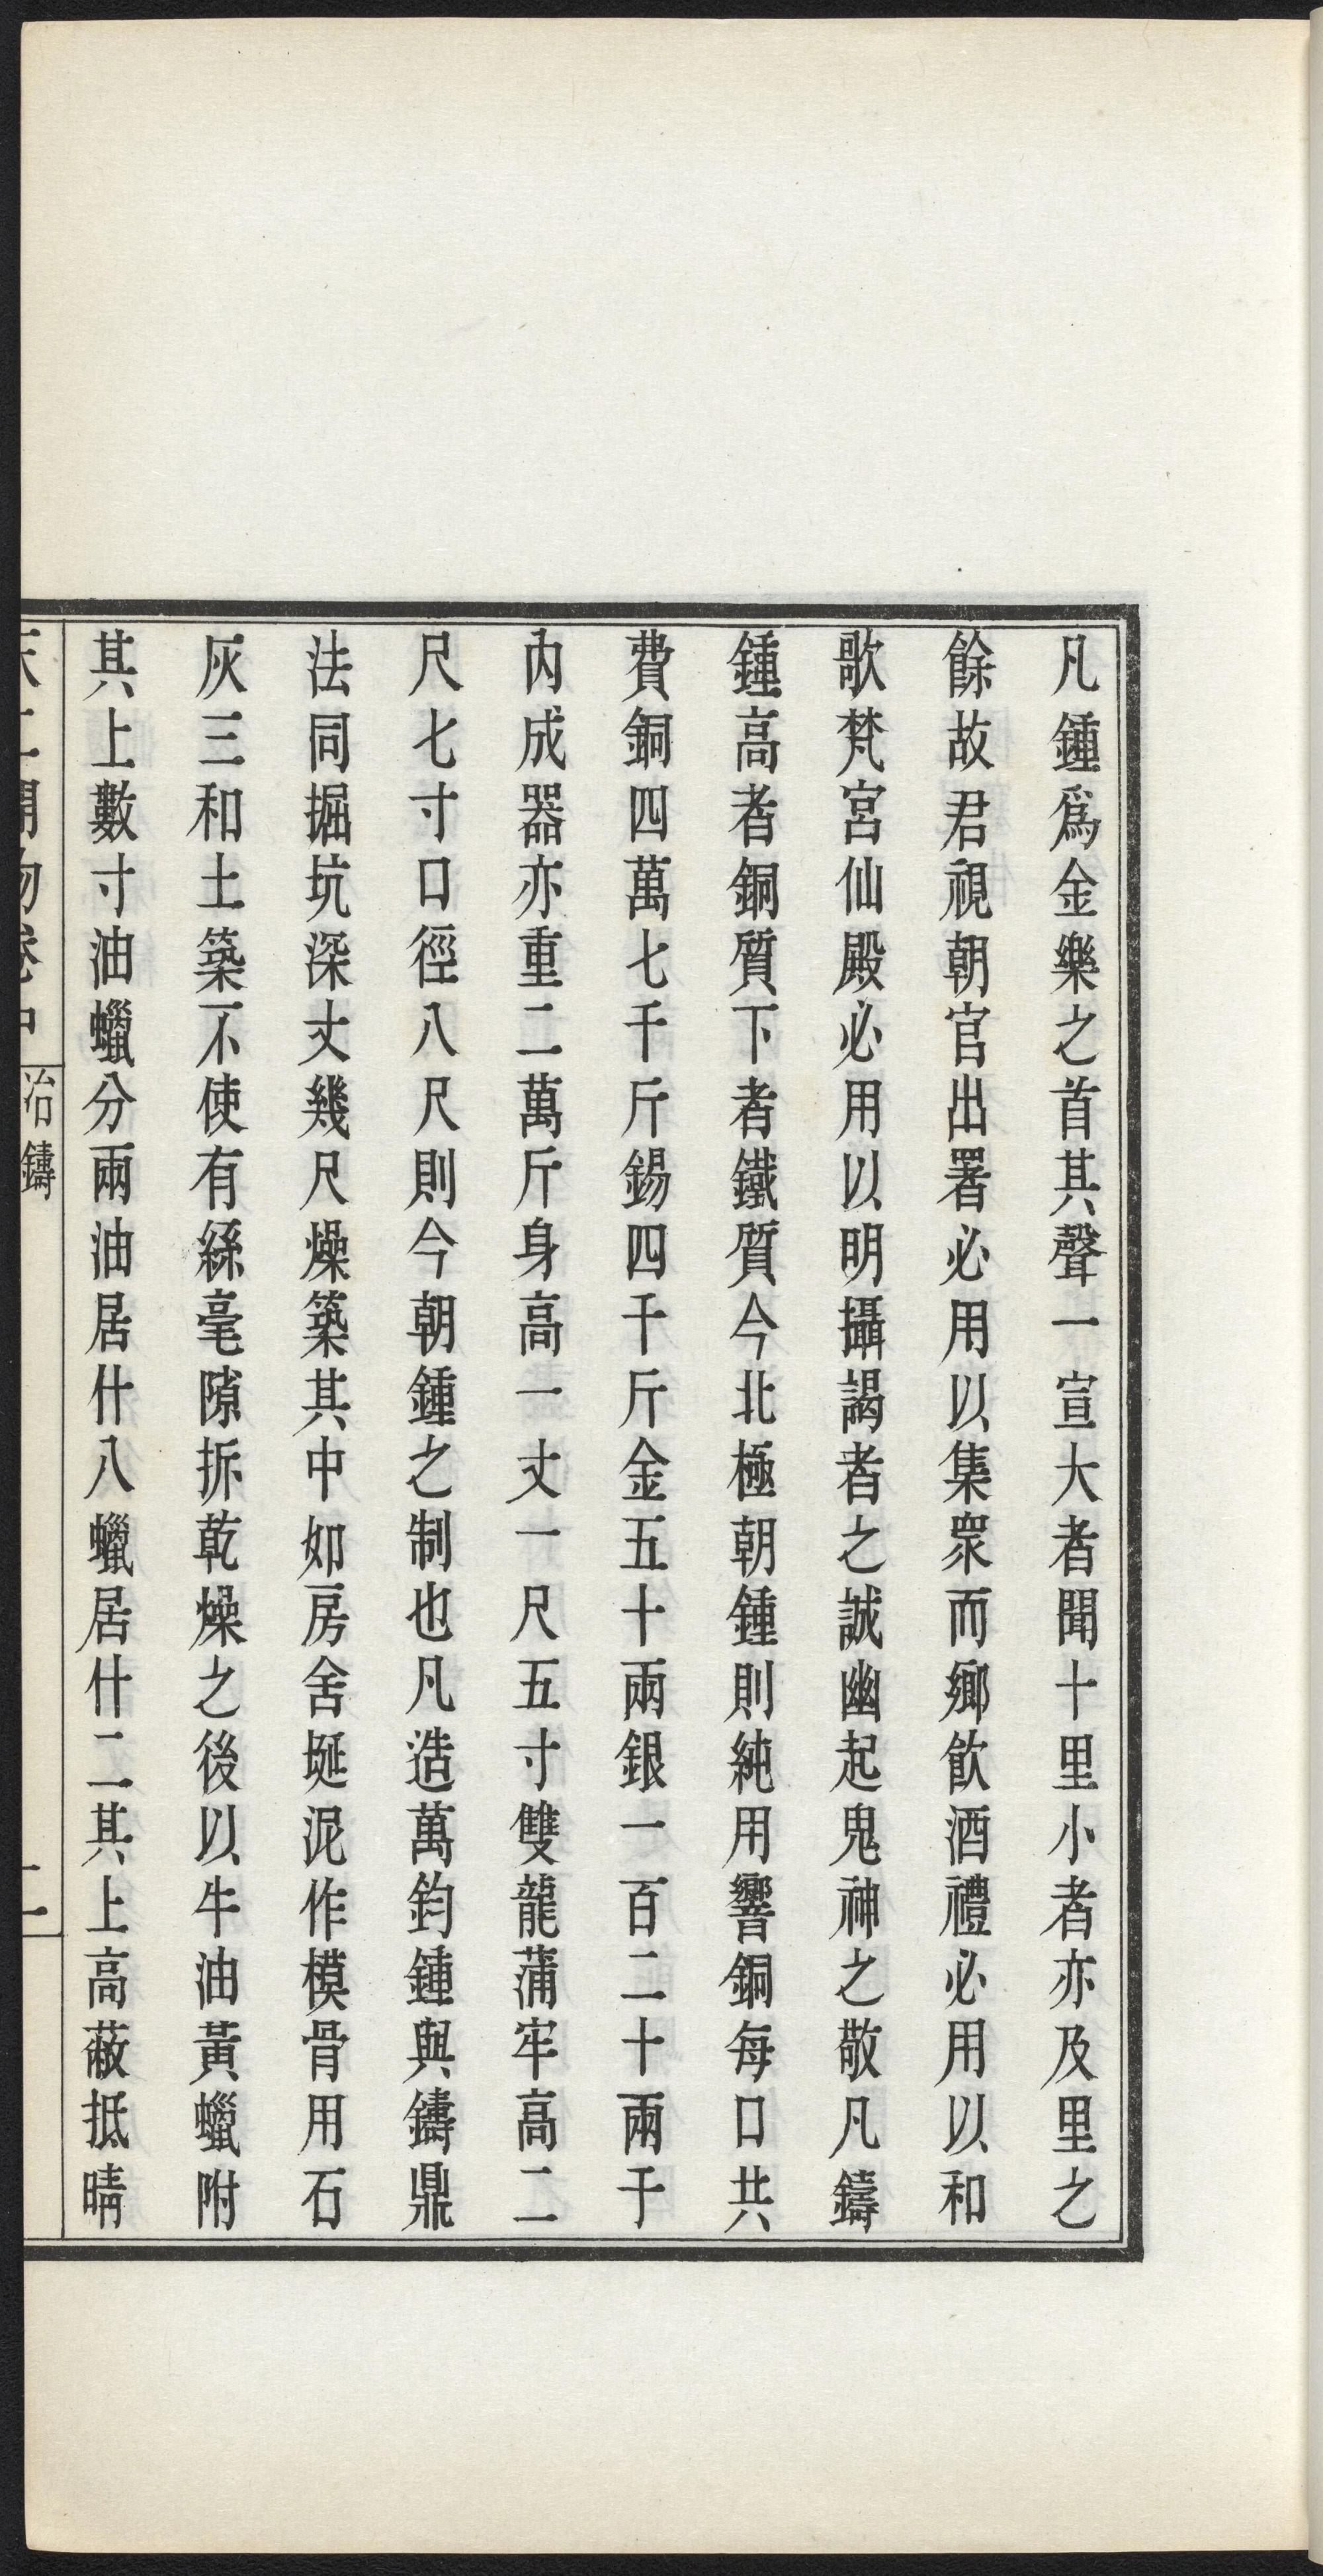 凡鍾爲金樂之首其聲一宣大者聞十里小者亦及里之
餘故君視朝官出署必用以集衆而鄉飲酒禮必用以和
歌梵宮仙殿必用以明攝謁者之誠幽起鬼神之敬凡鑄
鍾高者銅質下者鐵質今北極朝鍾則純用響銅每口共
費銅四萬七千斤錫四千斤金五十兩銀一百二十兩于
內成器亦重二萬斤身高一丈一尺五寸雙龍蒲牢高二
尺七寸口徑八尺則今朝鍾之制也凡造萬鈞鍾與鑄鼎
法同掘坑深丈幾尺燥築其中如房舍埏泥作模骨用石
灰三和土築不使有絲毫隙拆乾燥之後以牛油黃蠟附
其上數寸油蠟分兩油居什八蠟居什二其上高蔽抵晴
天工開物卷中
冶鑄
二